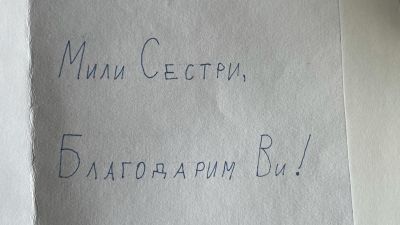 Мили Сестри,
Благодарим Ви!